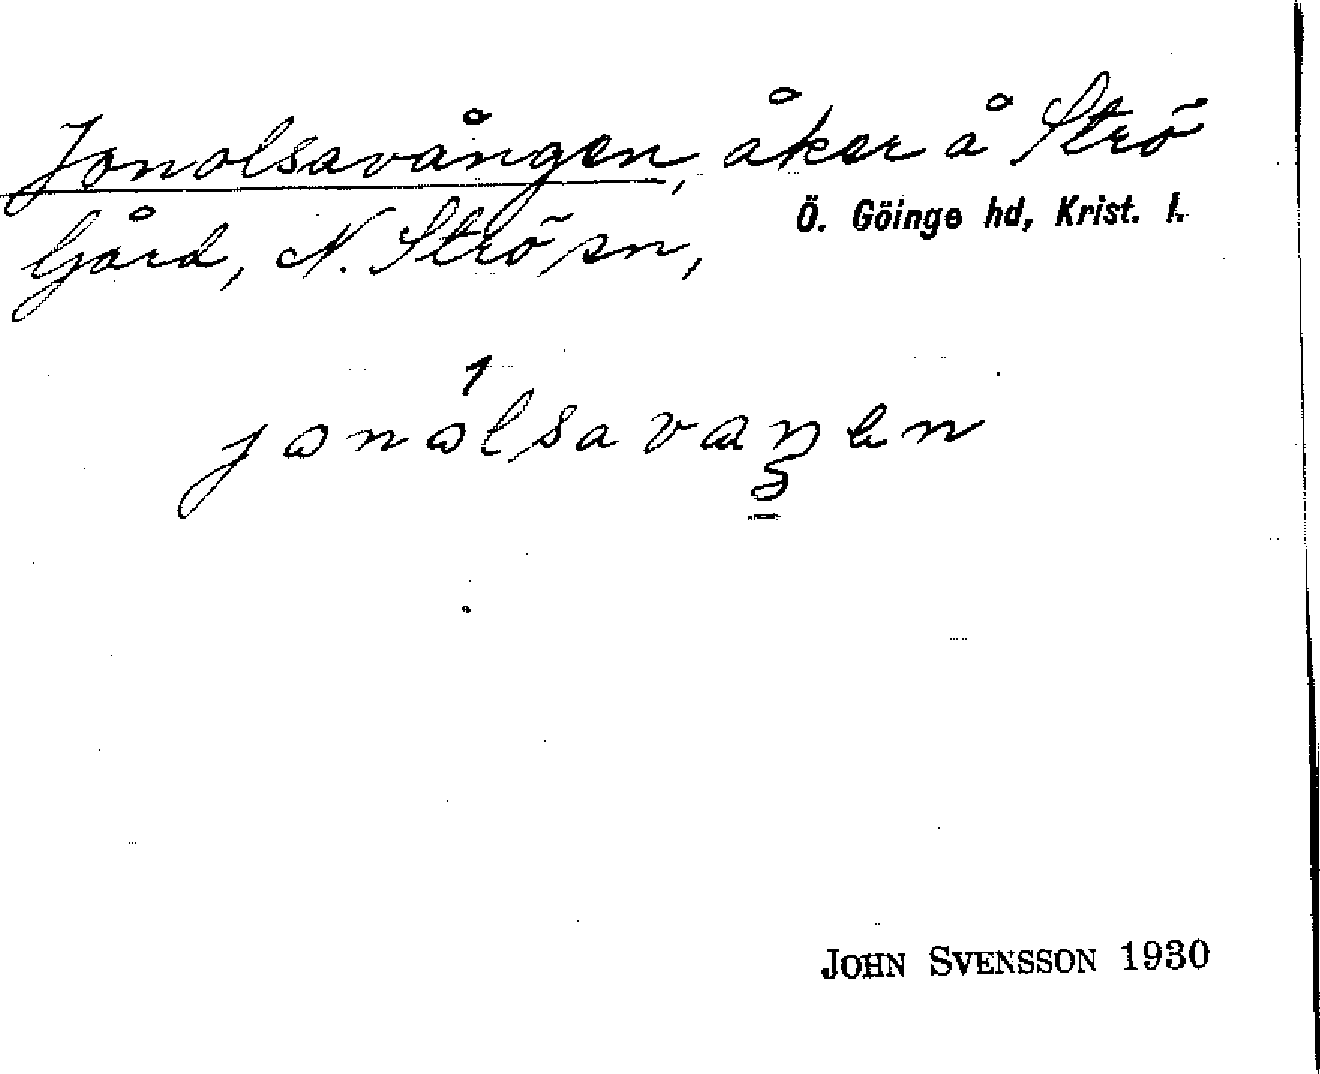 Jonolsavången, åker å Strö
Ö. Göinge hd, Krist. l.
Gård, N. Strö sn,
jonolsavaŋen
JOHN SVENSSON 1930